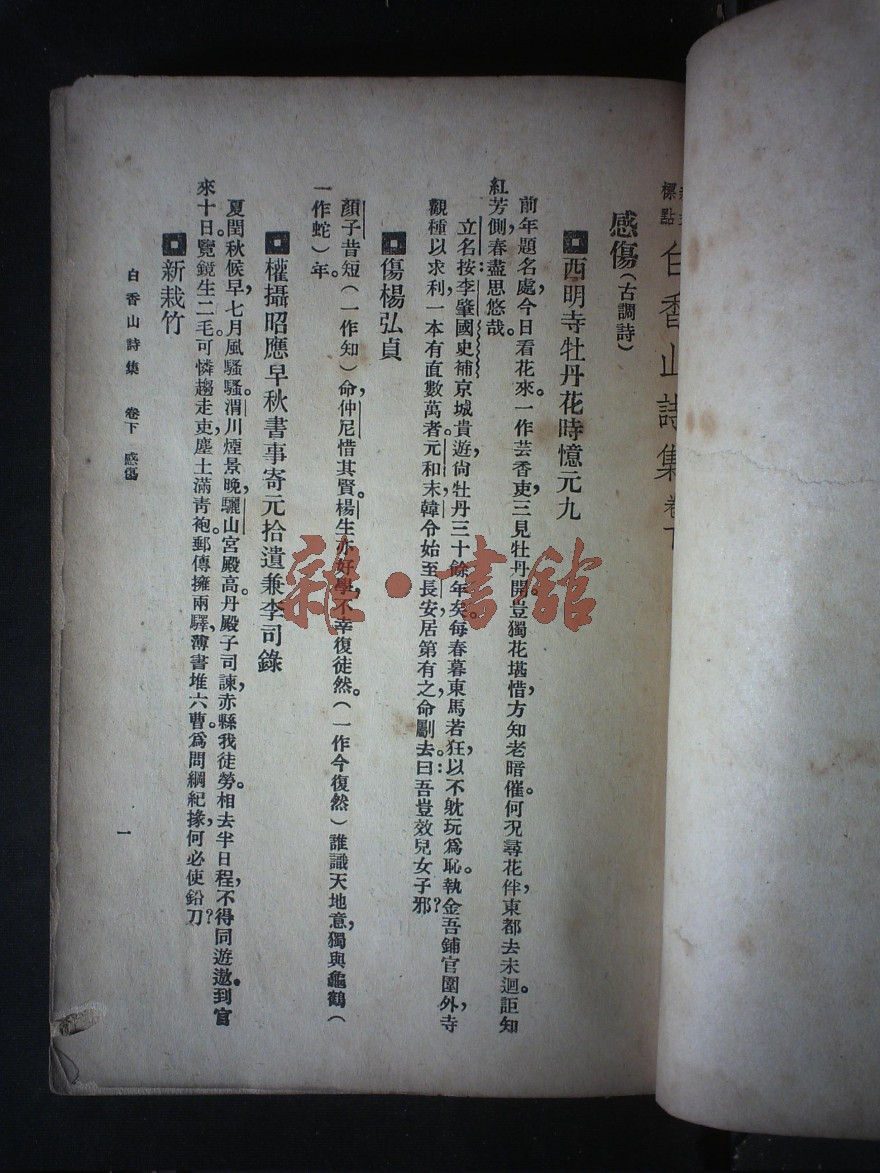 標點
白香山詩集卷下
感傷（古調詩）
西明寺牡丹花時憶元九
前年題名處，今日看花來。一作芸香吏，三見牡丹開。豈獨花堪惜，方知老暗催。何況尋花伴，東都去未迴。詎知
紅芳側，春盡思悠哉。
立名按：李肇國史補，京城貴遊尙牡丹三十餘年矣。每春暮東馬若狂，以不躭玩爲恥。執金吾鋪官圍外寺
觀種以求利，一本有直數萬者。元和末，韓令始至長安，居第有之，命劚去。曰：吾豈效兒女子邪？
傷楊弘貞
顏子昔短（一作知）命，仲尼惜其賢。楊生亦好學，不幸復徒然。（一作今復然）誰識天地意，獨與龜鶴（
一作蛇）年。
權攝昭應早秋書事寄元拾遺兼李司錄
夏閏秋候早，七月風騷騷。渭川煙景晚，驪山宮殿高。丹殿子司諫，赤縣我徒勞。相去半日程，不得同遊遨。到官
來十日，覽鏡生二毛。可憐趨走吏，塵土滿靑袍。郵傳擁兩驛，薄書堆六曹。爲問綱紀掾，何必使鉛刀？
新栽竹
白香山詩集　卷下　感傷
一
雜·書館